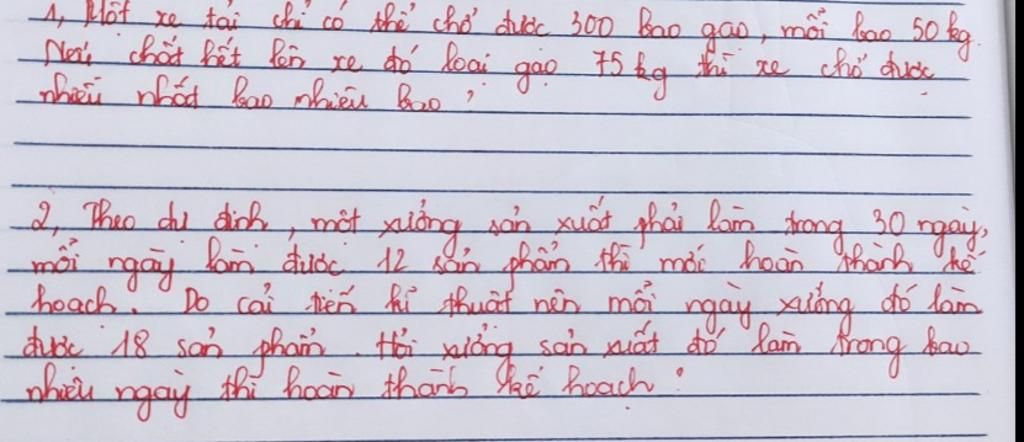 1, Một xe tải chỉ có thể chở được 300 bao gạo, mỗi bao 50 kg.
Nếu chất hết lên xe đó loại gạo 75 kg thì xe chở được
nhiều nhất bao nhiêu bao ?
2, Theo dự định, một xưởng sản xuất phải làm trong 30 ngày,
mỗi ngày làm được 12 sản phẩm thì mới hoàn thành kế
hoạch. Do cải tiến kĩ thuật nên mỗi ngày xưởng đó làm
được 18 sản phẩm. Hỏi xưởng sản xuất đó làm trong bao
nhiêu ngày thì hoàn thành kế hoạch ?